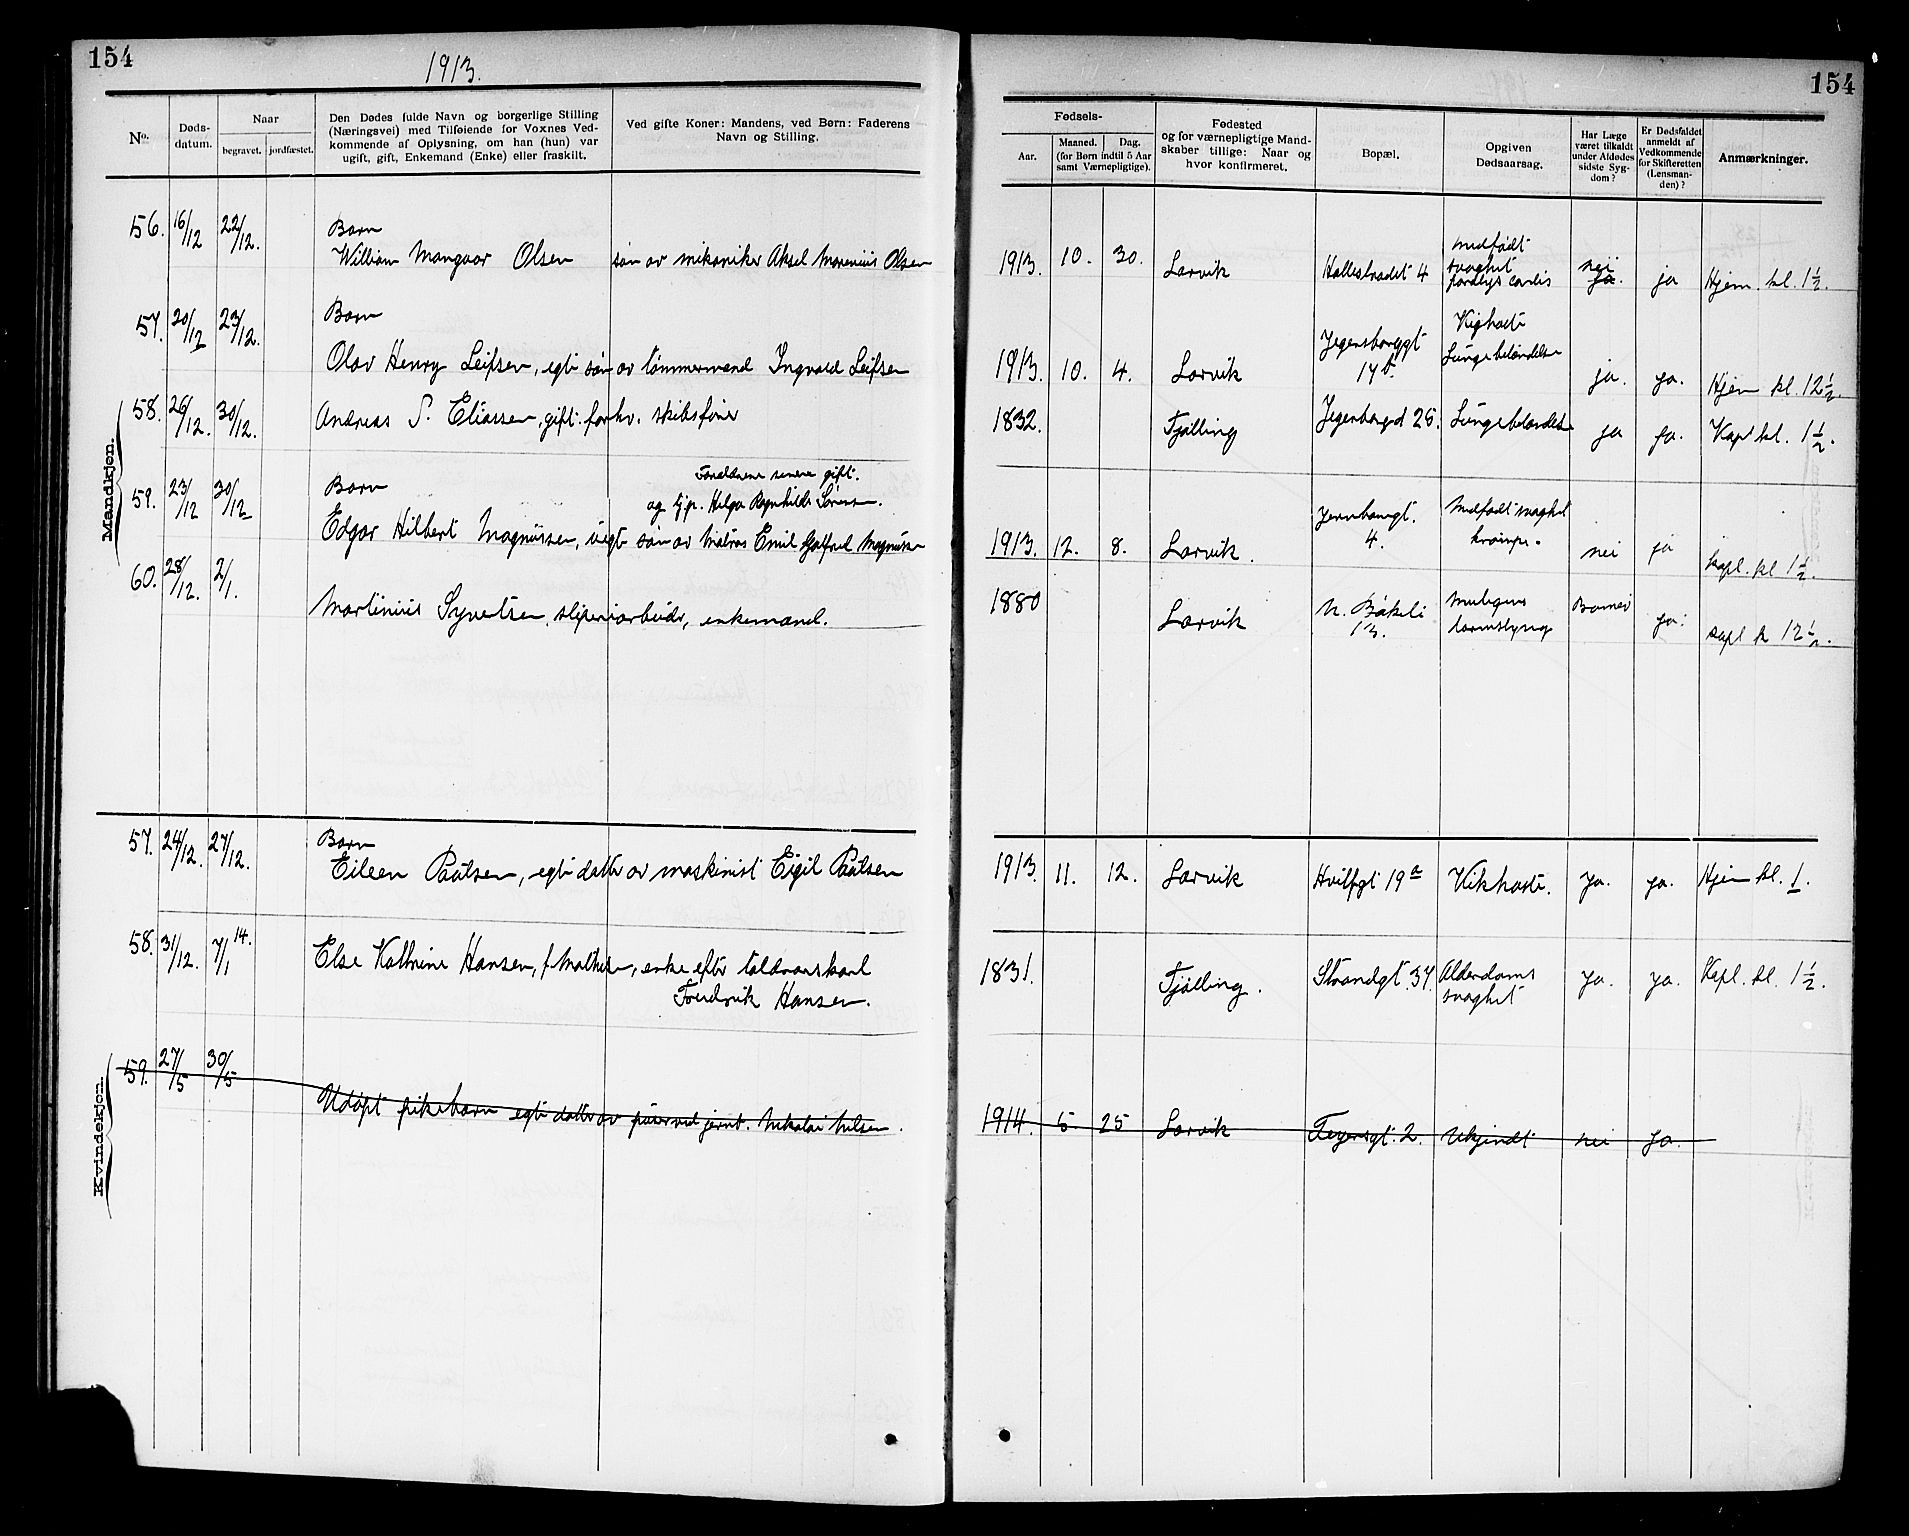 154
1913.
154
No.
Døds-
datum.
Naar
begravet.
jordfæstet.
Den Dødes fulde Navn og borgerlige Stilling
(Næringsvei) med Tilføiende for Voxnes Ved-
kommende af Oplysning, om han (hun) var
ugift, gift, Enkemand (Enke) eller fraskilt.
Ved gifte Koner: Mandens, ved Børn: Faderens
Navn og Stilling.
Fødsels-
Aar.
Maaned. Dag.
(for Børn indtil 5 Aar
samt Værnepligtige).
Fødested
og for værnepligtige Mand-
skaber tillige: Naar og
hvor konfirmeret.
Bopæl.
Opgiven
Dødsaarsag.
Har Læge
været tilkaldt
under Afdødes
sidste Syg-
dom?
Er Dødsfaldet
anmeldt af
Vedkommende
for Skifteretten
(Lensman-
den)?
Anmærkninger.
Mandkjøn.
56. 16/12 22/12.
Barn
William Olsen søn av mekaniker Aksel Marenius Olsen
1913. 10. 30. Larvik 4 medfødt svaghet nei ja. ja Hjem. kl. 1½.
57. 20/12 23/12.
Barn
Olav Henry Leifsen, egte søn av tømmermand Ingvald Leifsen
1913. 10. 4. Larvik 17 b. Kighoste Lungebetændelse ja. ja. Hjem kl. 12½.
58. 26/12. 30/12.
Andreas S. Eliassen, gift. forhv. skibsfører
1832. Tjølling 25. Lungebetændelse ja ja. Kapl kl. 1½.
59. 23/12 30/12
Barn
Forældrene senere gift.
og tj.p. Helga Ragnhilde
Edgar Hilbert Magnussen, uegte søn av Matros Emil Magnussen
1913. 12. 8. Larvik. 4. Medfødt svaghet krampe. nei ja kapl. kl 1½.
60. 28/12. 2/1.
Martinius Syvertsen, sliperiarbeider, enkemand.
1880 Larvik N. Bøkeli 13. muligens ja. kapl k 12½.
Kvindekjøn.
57. 24/12. 27/12.
Barn
Eileen Paulsen, egte datter av maskinist Eigil Paulsen
1913. 11. 12. Larvik Hvilfgt 19 a Kikhoste. ja. ja. Hjem kl. 1.
58. 31/12. 7/1 14.
Else Kathrine Hansen, f. Mathisen, enke efter
Fredrik Hansen.
1831. Tjølling. Strandgt. 37. Alderdoms svaghet ja. ja. Kapl. kl. 1½.
59. 27/5 30/5
Udøpt pikebarn egte datter av ved jernb. Nikolai Nilsen.
1914. 5 25 Larvik 2. Ukjendt nei ja.